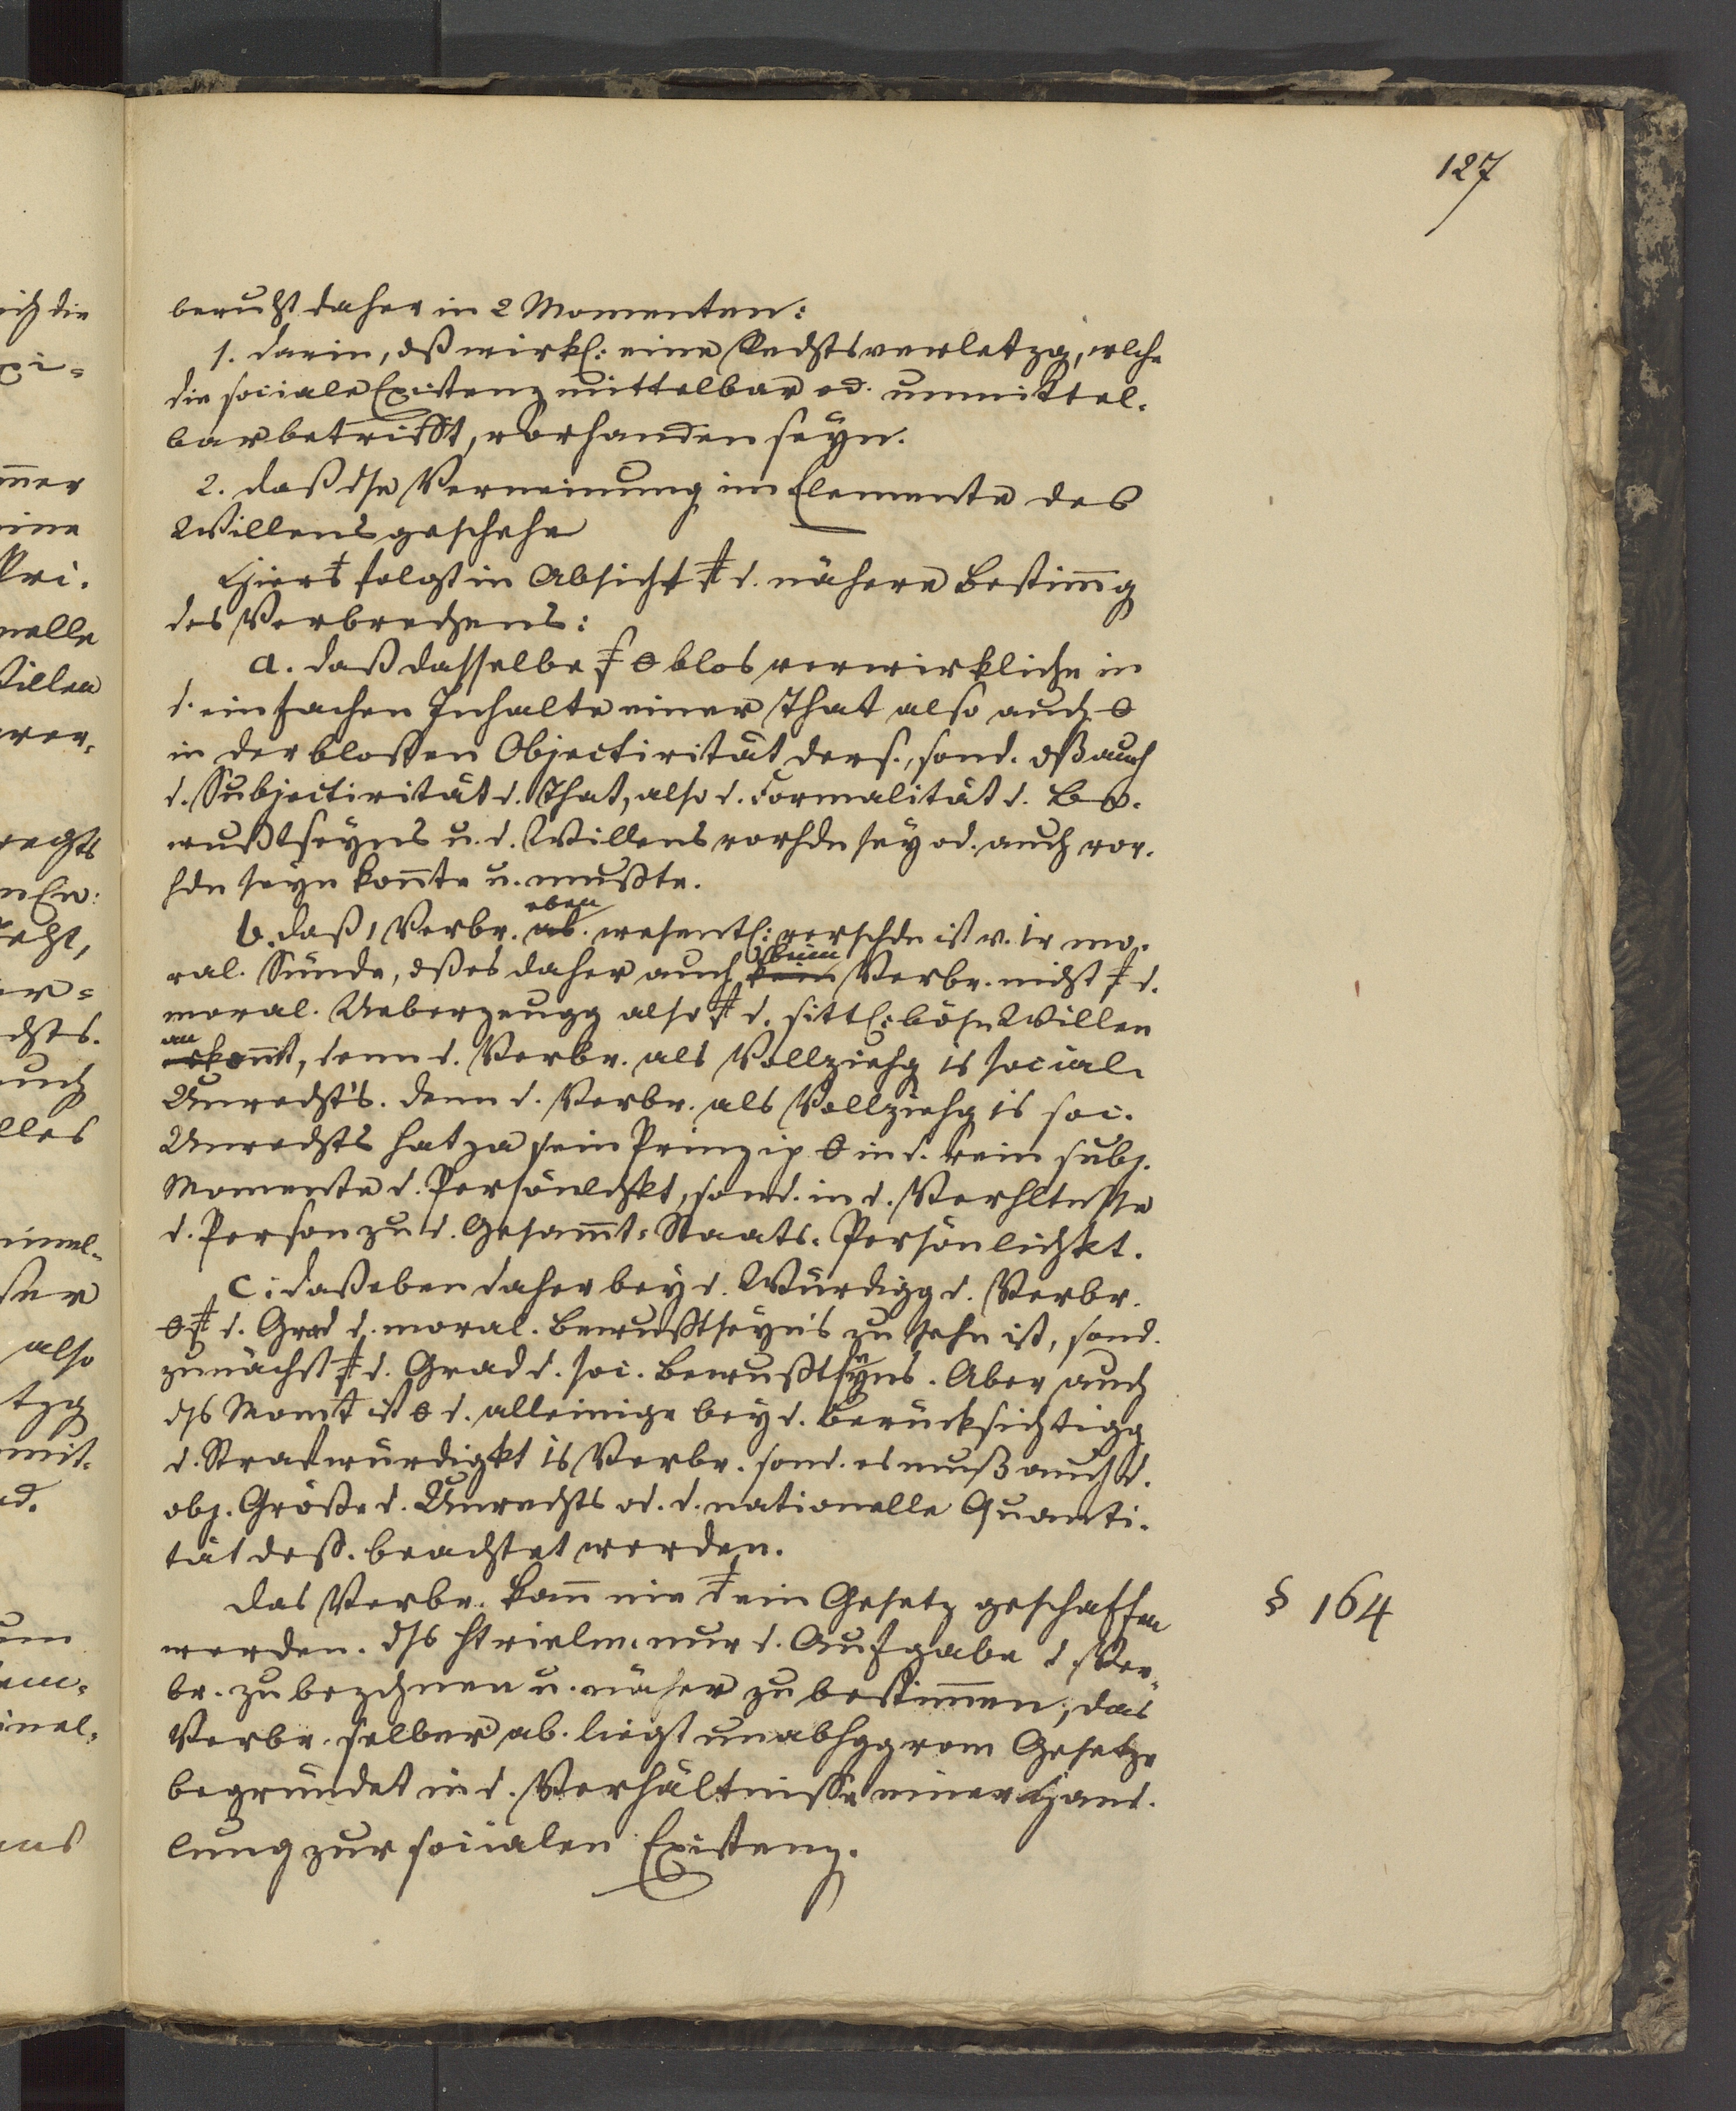 127
beruht daher in 2 Momenten:
1. darin, dß wirkl: eine Rechtsverletzg, wlche
die sociale Existenz mittelbar od. unmittel-
bar betrifft, vorhanden seyn.
2. daß dse Verneinung im Elemente des
Willens geschehe
Hier folgt in Absicht ‡ d. nähere Bestim̄g
des Verbrechens:
a. daß dasselbe ‡ θ blos verwirkliche in
d. einfachen Inhalte einer That also auch θ
in der blossen Objectivität ders., sond. dß auch
d. Subjectivität d. That, also d. Formalität d. Be-
wußtseyns u. d. Willens vorhdn sey od. auch vor-
hdn seyn kon̄te u. mußte.
eben
b. daß 1 Verbr. wesentl: verschdn ist v. 1r mo-
beim
ral. Sünde, dß es daher auch kein Verbr. nicht ‡ d.
moral. Ueberzeugg also ‡ d. sittl: böse Willen
an
erkom̄t, denn d. Verbr. als Vollziehg 1s social.
Unrechts. denn d. Verbr. als Vollziehg 1s soc.
Unrechts hat ja sein Prinzip θ in d. rein subj.
Momente d. Persönlchkt, sond. in d. Verhltnsse
d. Person zu d. Gesam̄t-Staats-Persönlichkt.
c: daß eben daher bey d. Würdigg d. Verbr.
θ ‡ d. Grad d. moral. Bewußtseyns zu sehn ist, sond.
zunächst ‡ d. Grad d. soc. Bewußtseyns. Aber auch
dß Momt ist θ d. alleinige bey d. Berücksichtigg
d. Strafwürdigkt 1s Verbr. sond. es muß auch d.
obj. Größe d. Unrechts od. d. nationelle Quanti-
tät dess. beachtet werden.
das Verbr. kan̄ nie ‡ ein Gesetz geschaffen
§ 164
werden. dß ht vielm. nur d. Aufgabe d. Ver-
br. zu bezchnen u. näher zu bestim̄en; das
Verbr. selber ab. liegt unabhgg vom Gesetze
begründet in d. Verhältnisse einer Hand-
lung zur socialen Existenz.